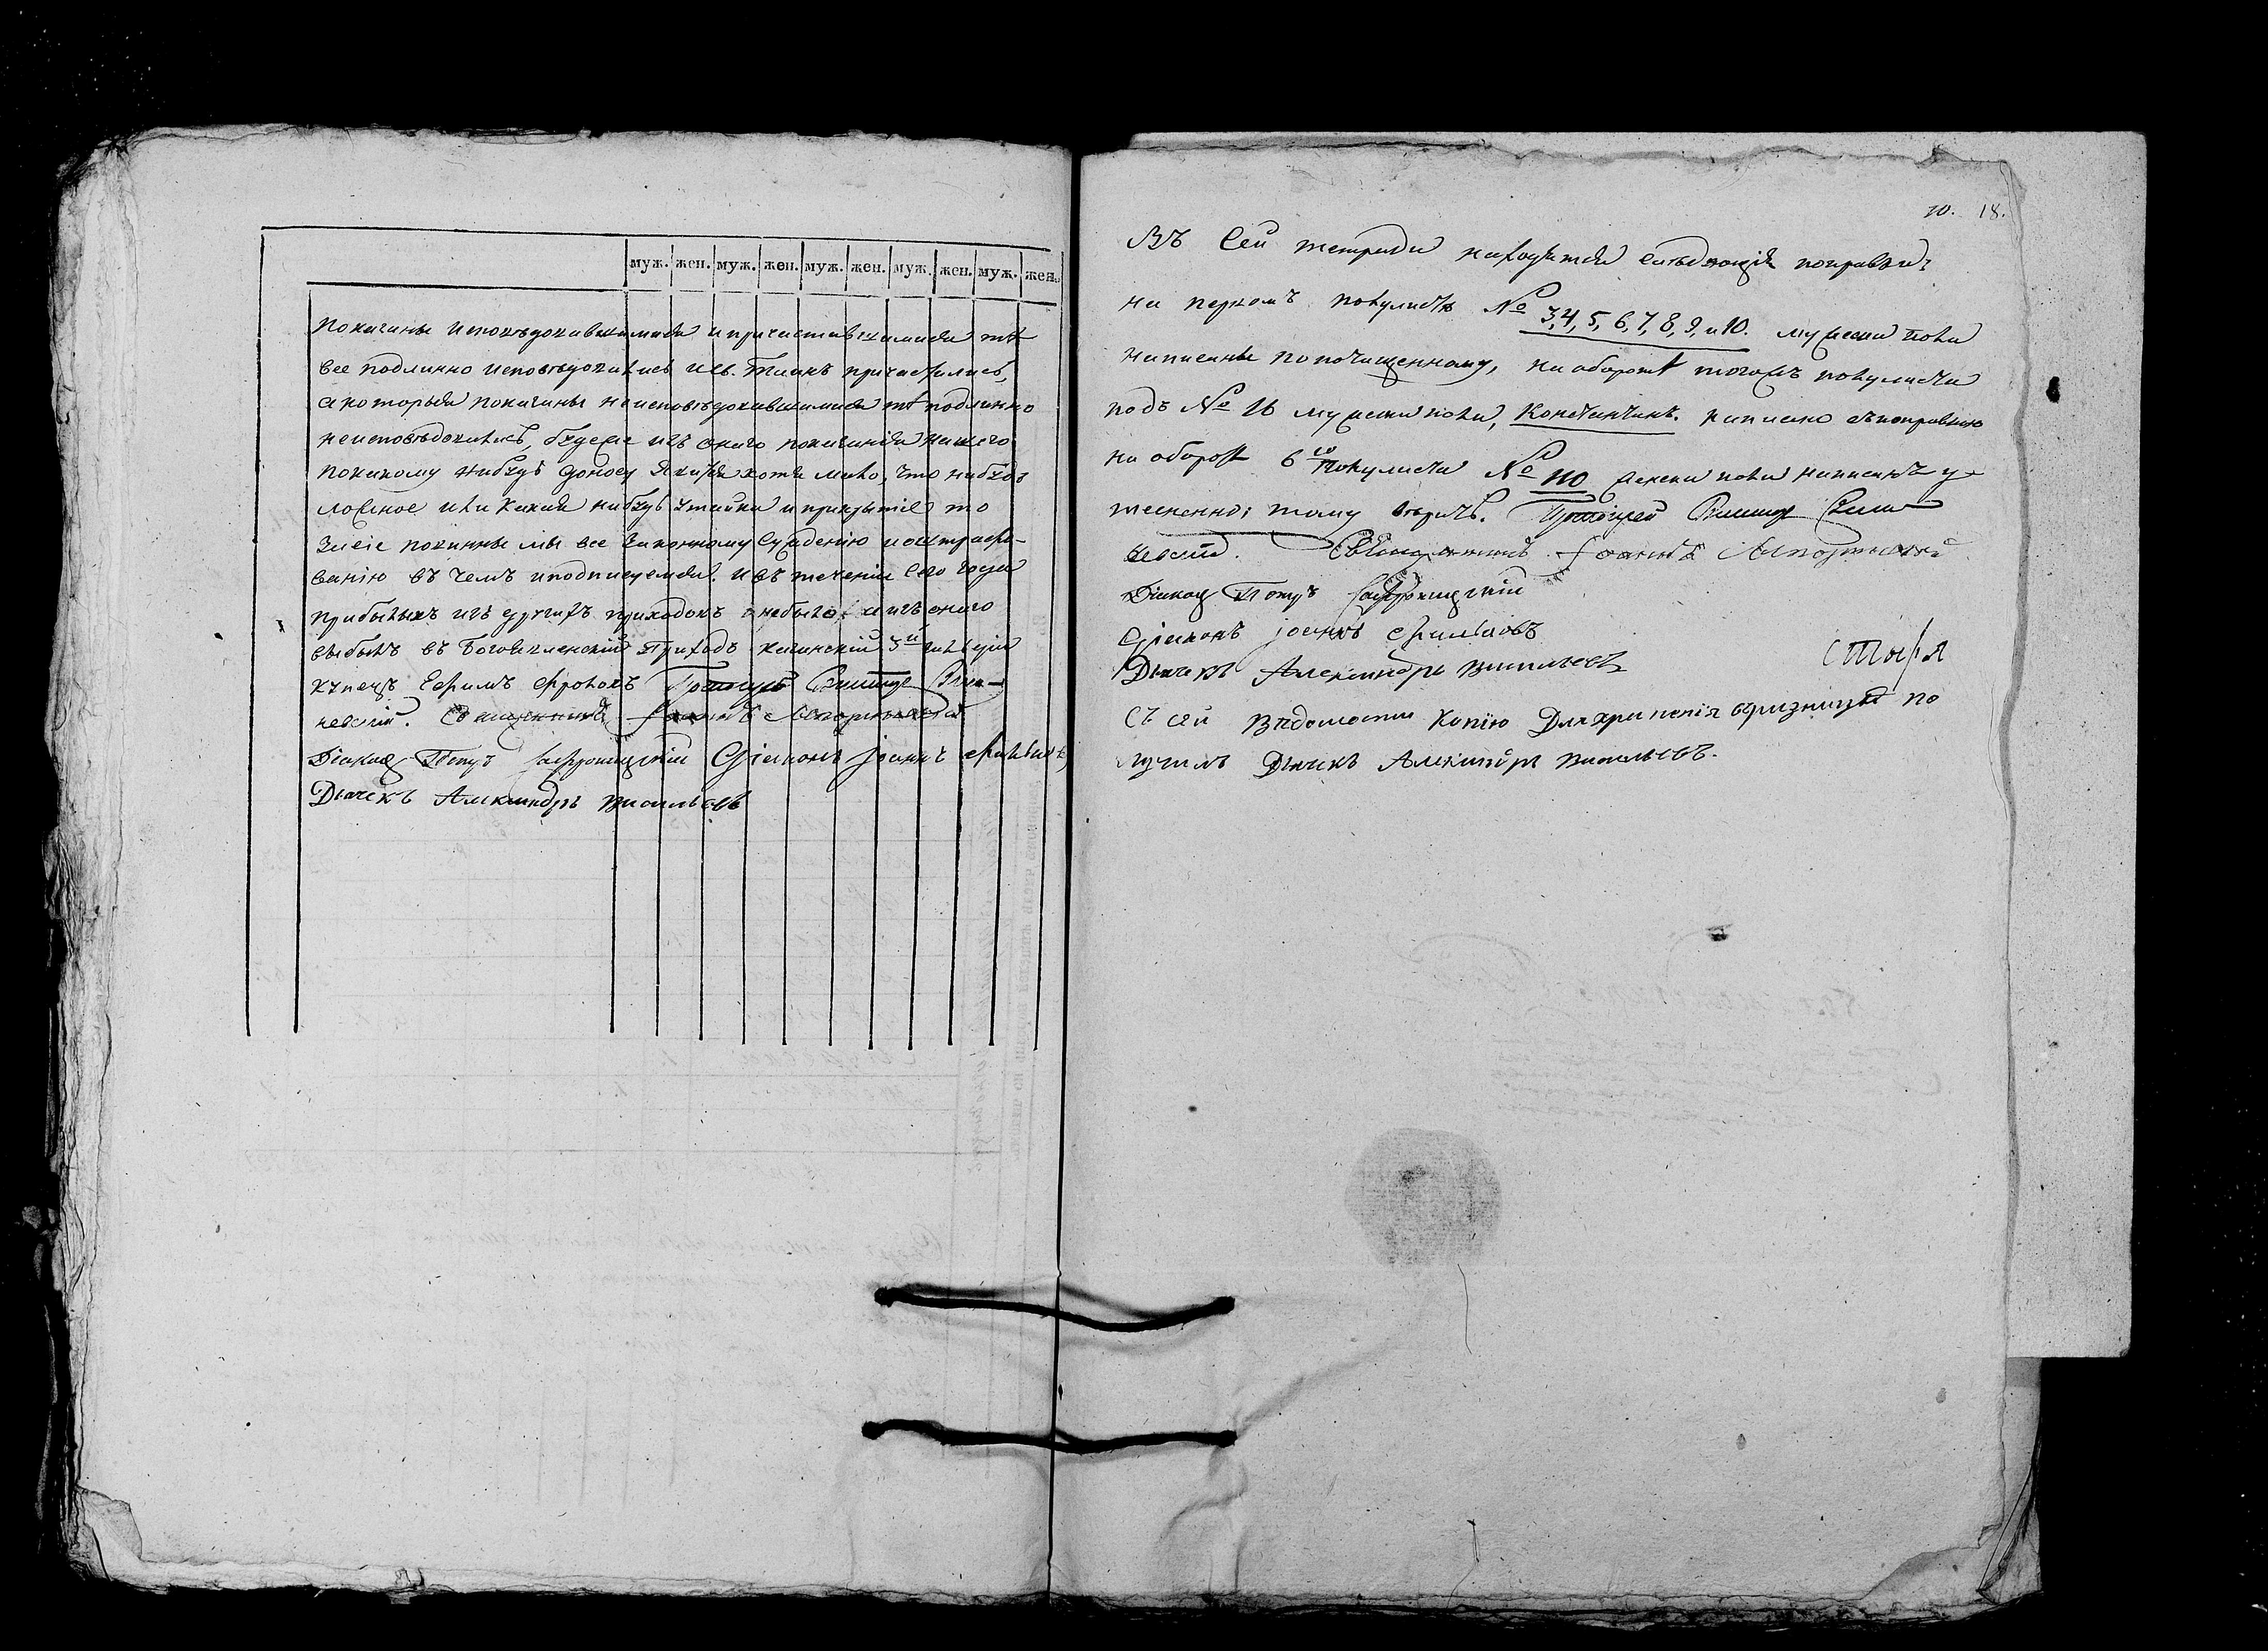 муж. жен. муж. жен. муж. жен. муж. жен. муж. жен.
показаны исповѣдовавшимися и причастившимися тѣ
все подлинно исповѣдовались и св. Таинъ причастились,
а которыя показаны неисповѣдовавшимися тѣ подлинно
неисповѣдовались, буде же изъ онаго показанія нашего
по какому нибудь доносу явится хотя мало, что нибудь
ложное или какая нибудь утайка и прикрытіе то
за сіе повинны мы все законному сужденію и оштрафо-
ванію въ чемъ и подписуемся. и въ теченіи сего года
прибылыхъ изъ другихъ приходовъ не было, а изъ онаго
выбылъ въ Богоявленский Приходъ 3й гильдіи
купецъ Ефимъ Фроловъ Протоіерей
невскій. Священникъ Іоаннъ
Діаконъ Петръ Діаконъ Іоаннъ
Дьячекъ Александръ Васильевъ
10. 18.
Въ сей тетради находятся слѣдующія поправки:
на первомъ полулистѣ № 3, 4, 5, 6, 7, 8, 9, и 10. мужеска пола
написаны по почищенному, на оборотѣ тогожъ полулиста
подъ № 16 мужеска пола, Константинъ. написано съ поправкою
на оборотѣ 6го полулиста № 110 женска пола написанъ у-
тесненно; тому вторичъ. Протоіерей
невскій. Священникъ Іоаннъ
Діаконъ Петръ
Діаконъ Іоаннъ
Дьячекъ Александръ Васильевъ
съ сей вѣдомости копію для храненія въ ризницѣ по
лучилъ Дьячекъ Александръ Васильевъ.